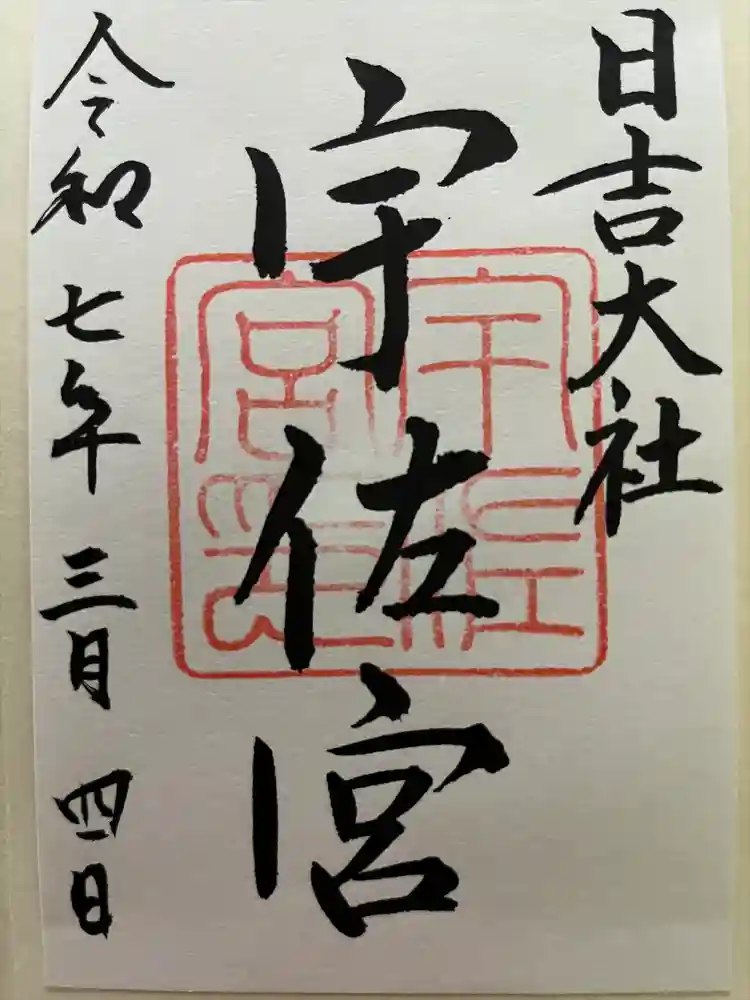 日吉大社
宇佐宮
宇佐宮印
令和七年三月四日